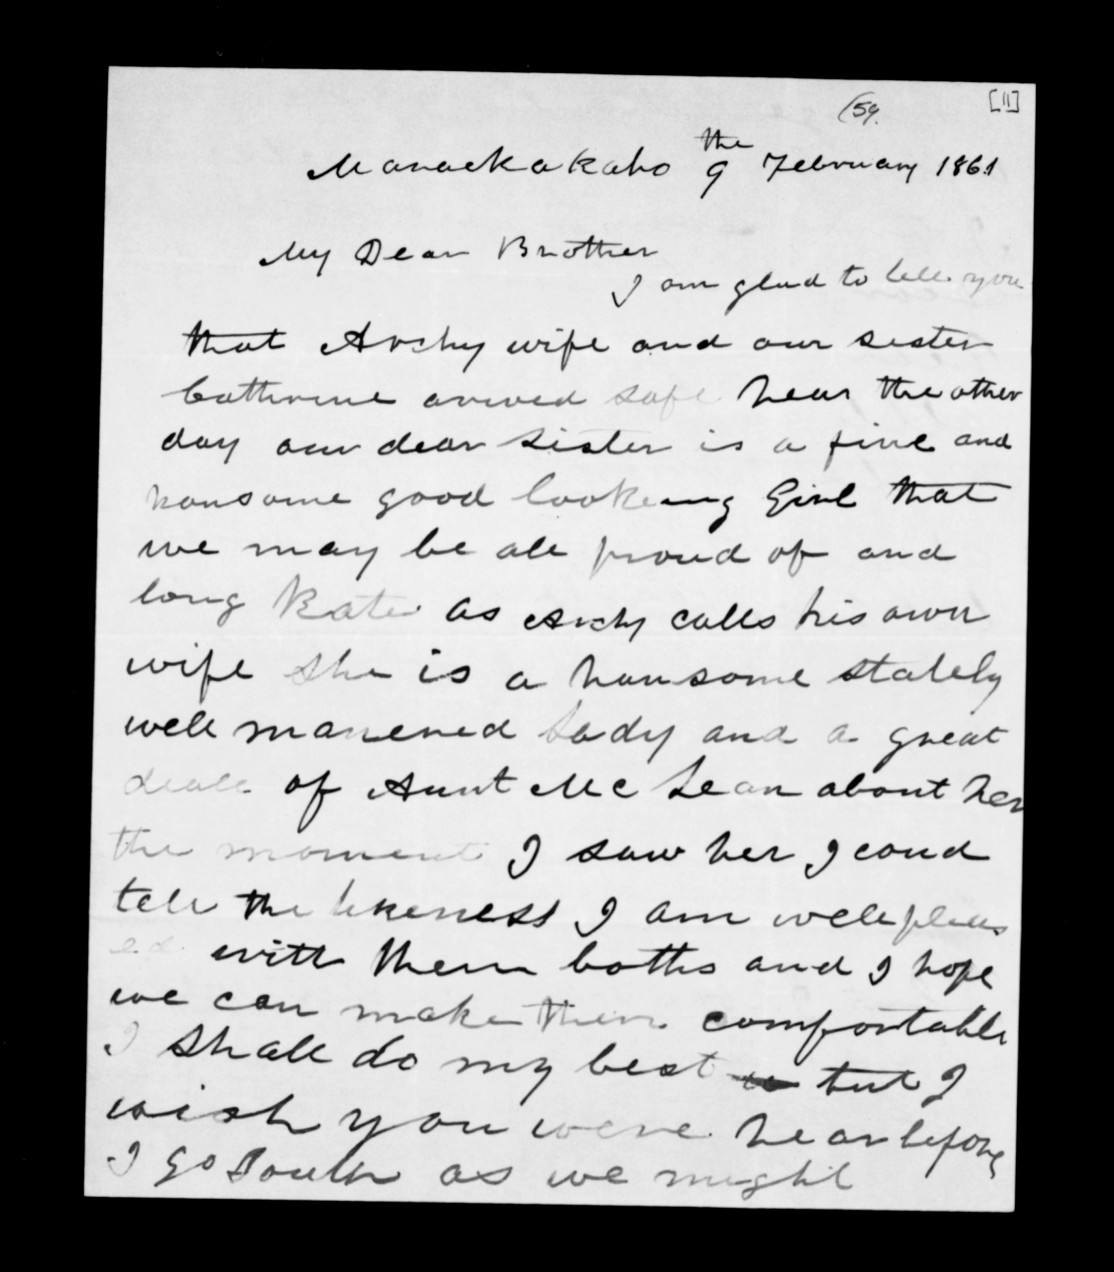 (59.
[11]
Maraekakaho 9 the February 1861
My Dear Brother
I am glad to tell you
that Archy wife and our sister
Catherine arived safe hear the other
day our dear sister is a fine and
hansome good lookeing Girl that
we may be all proud of and
long Kate as Archy calls his own
wife she is a hansome stately
well manened Lady and a great
deall of Aunt McLean about her
the moment I saw her I coud
tell the likeness I am well pleas
ed with them boths and I hope
we can make them comfortable
I shall do my best but I
wish you were hear before
I go South as we might